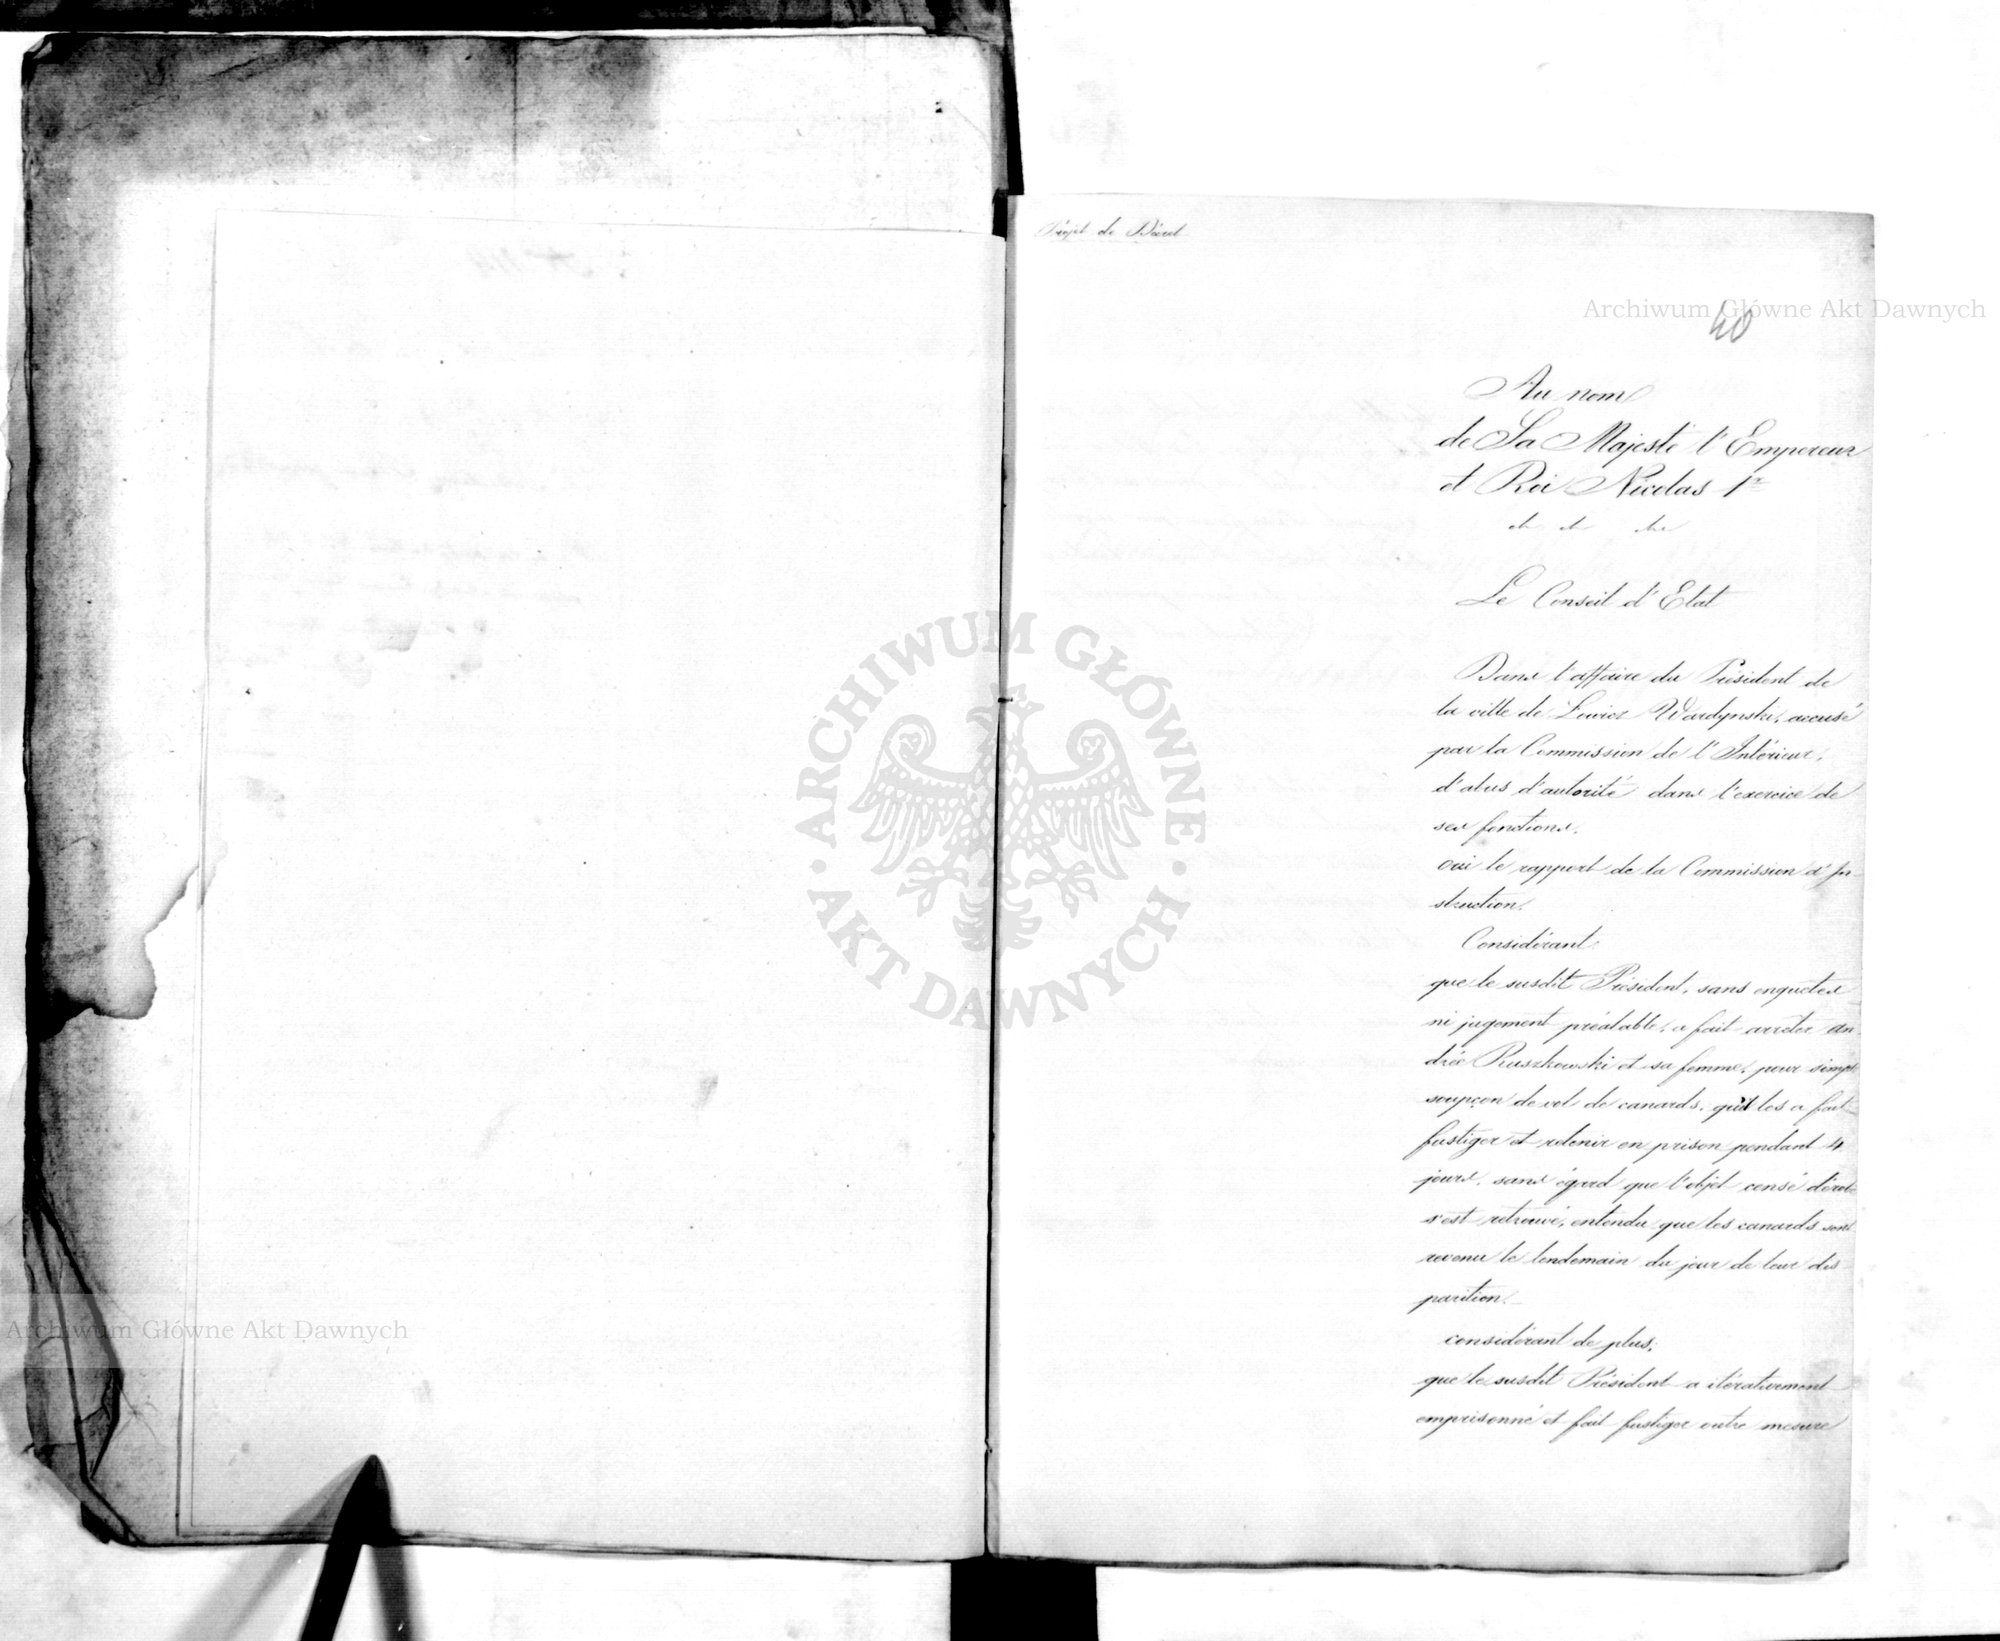 Projet de Décret
Archiwum Główne Akt Dawnych
40
Au nom
de Sa Majesté l'Empereur
et Roi Nicolas 1r
etc etc etc
Le Conseil d'Etat
Dans l'affaire du Président de
la ville de Lowicz Wardynski, accusé
par la Commission de l'Intérieur,
d'abus d'autorité dans l'exercice de
ses fonctions.
oui le rapport de la Commission d'In-
struction.
Considérant:
que le susdit Président, sans enquetes
ni jugement préalable, a fait arrêter An-
drée Ruszkowski et sa femme, pour simple
soupçon de vol de canards, qu'il les a fait
fustiger et retenir en prison pendant 4
jours, sans égard que l'objet censé dérobé
s'est retrouvé, entendu que les canards sont
revenu le lendemain du jour de leur dis-
parition.
considérant de plus,
que le susdit Président a itérativement
emprisonné et fait fustiger outre mesure
ARCHIWUM GŁÓWNE
AKT DAWNYCH
Archiwum Główne Akt Dawnych